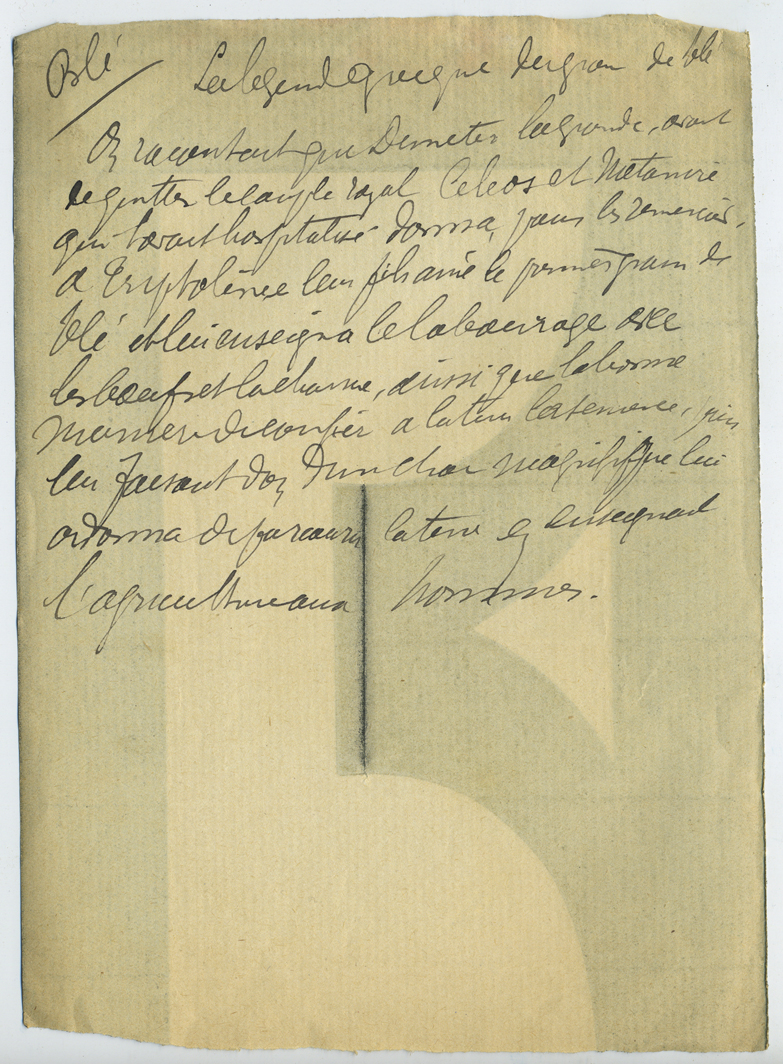 Blé
La légende grecque du grain de blé
On racontait que Demeter la grande, avant
de quitter le couple royal Céléos et Métanire
qui l'avait hospitalisé donna, pour les remercier,
a Triptolème leur fils ainé le premier grain de
blé et lui enseigna le labourage avec
les bœufs et la charrue, aussi que la bonne
maniere de confier a la terre la semence, puis
leu faisant don d'un char magnifique lui
ordonna de parcourir la terre en enseignant
l'agriculture aux hommes.